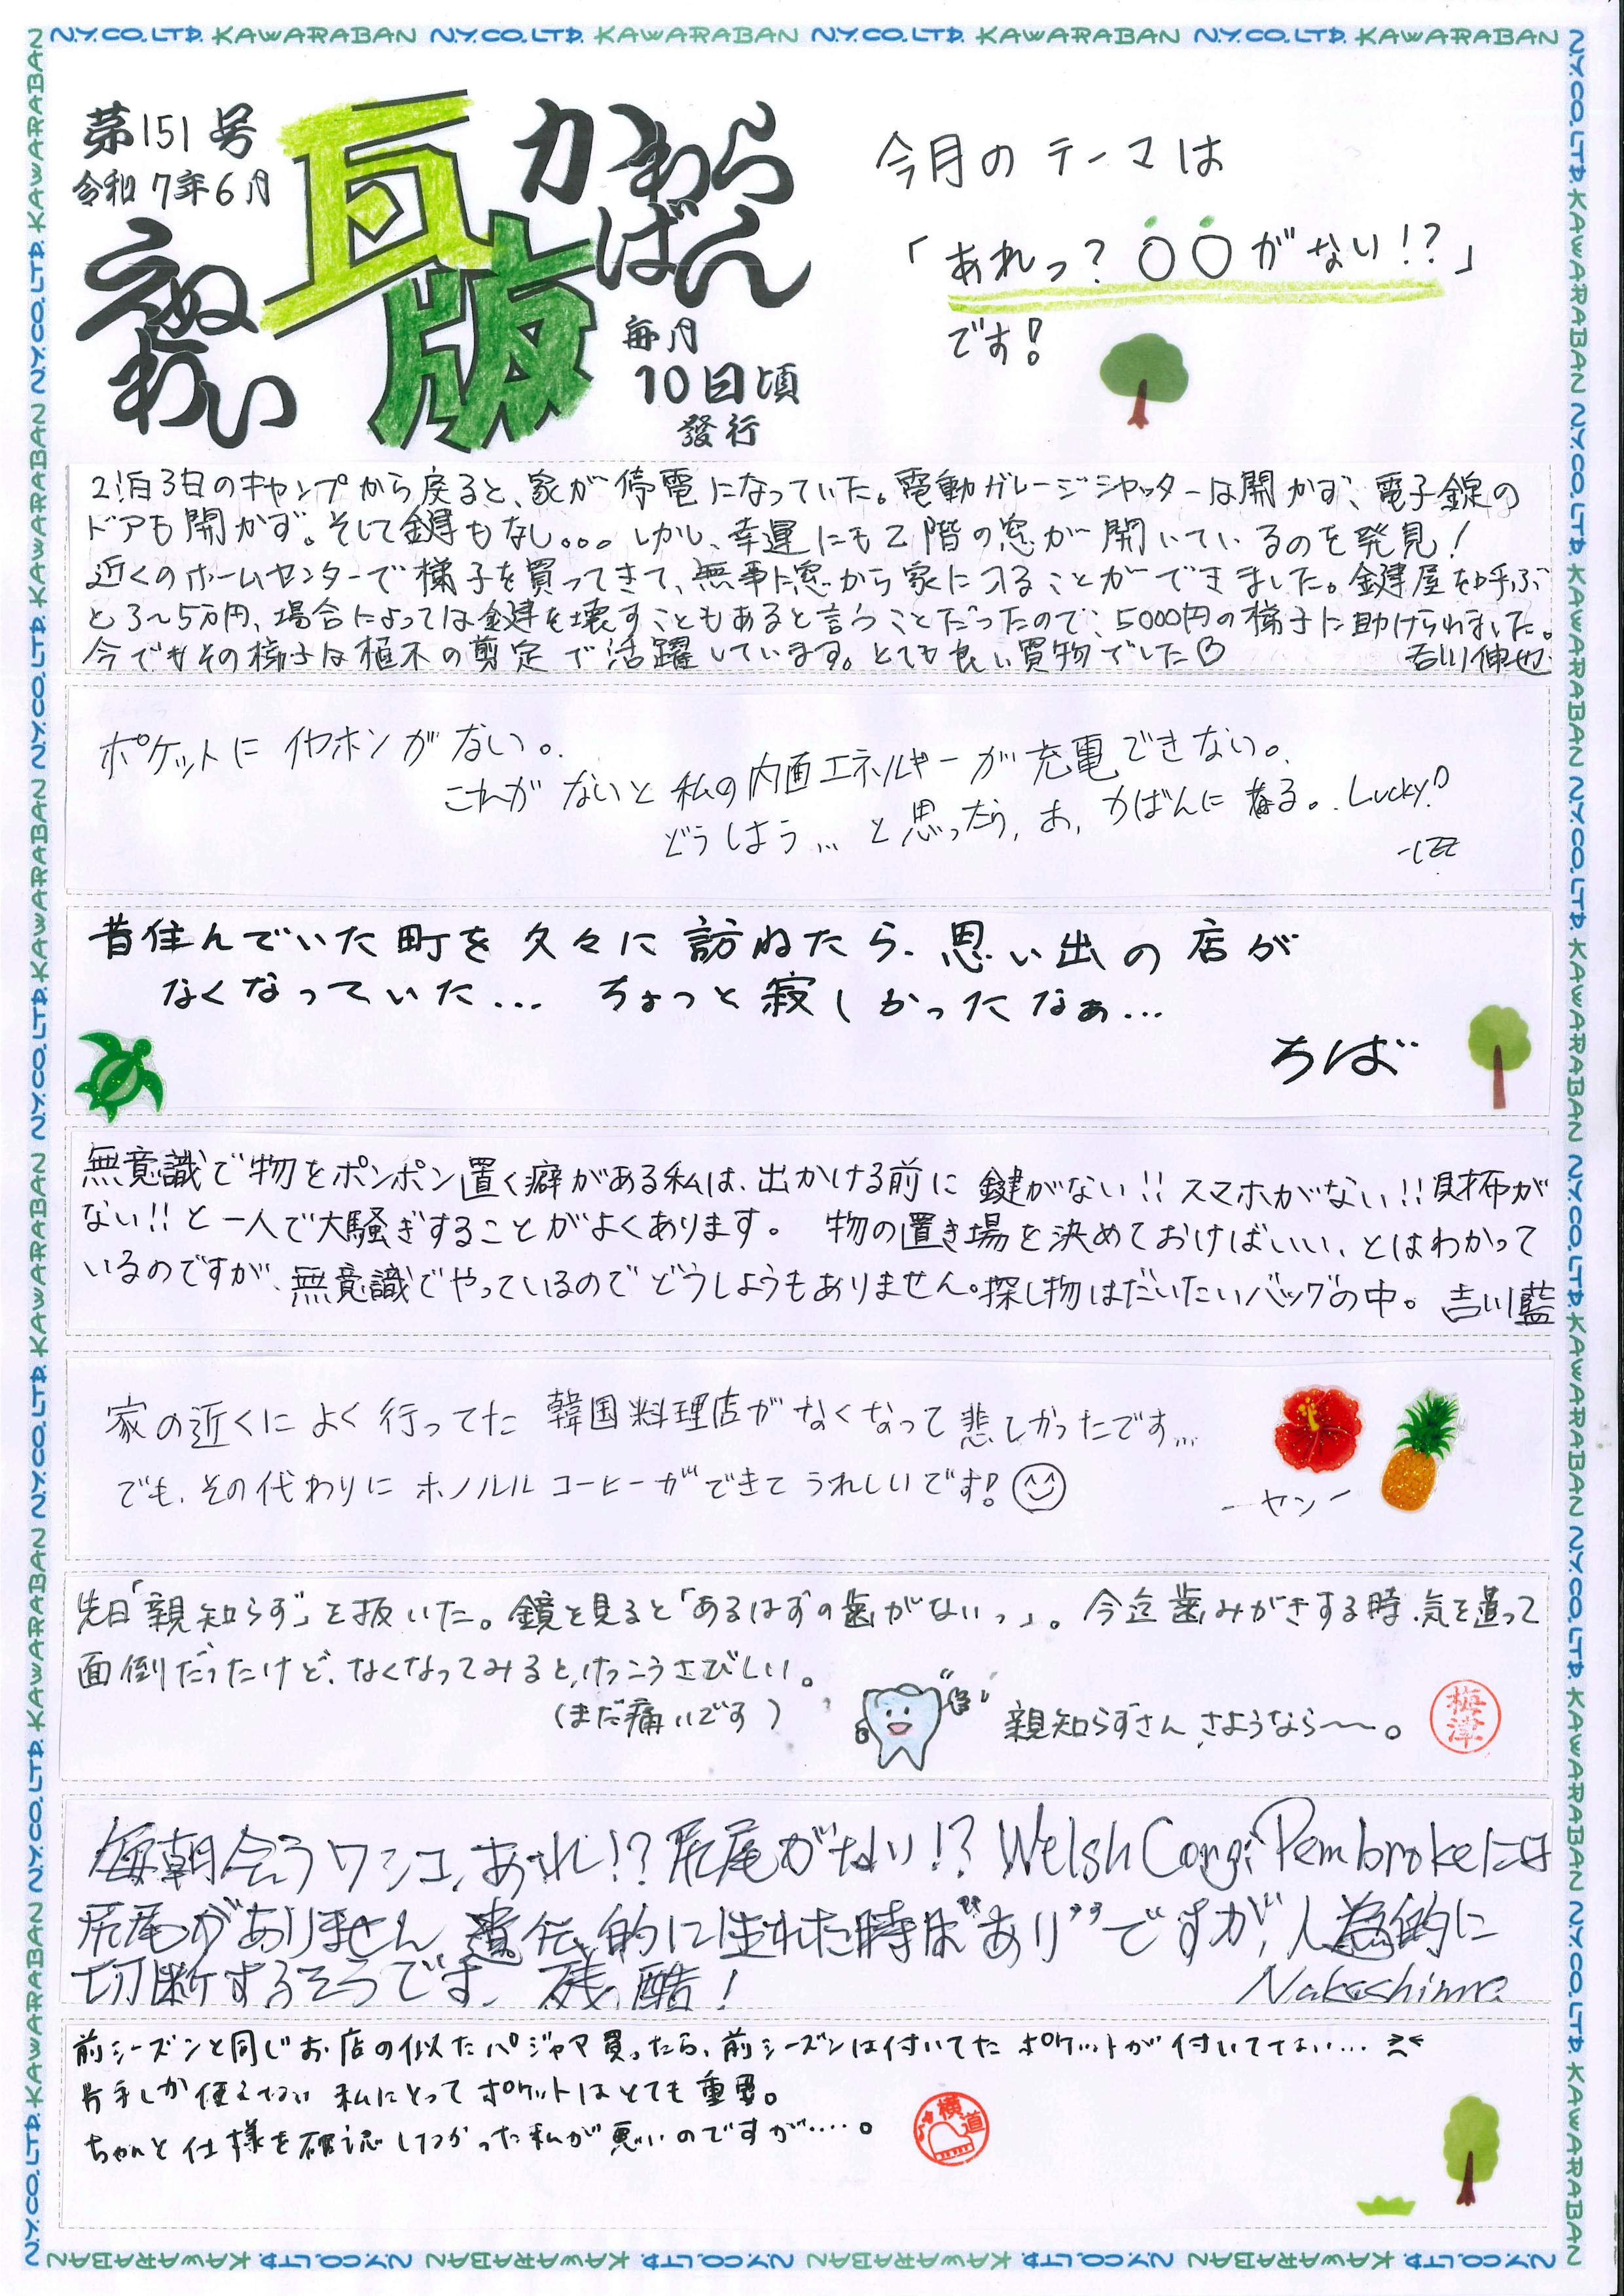 N.Y.CO.LTD. KAWARABAN N.Y.CO.LTD. KAWARABAN N.Y.CO.LTD. KAWARABAN N.Y.CO.LTD. KAWARABAN
第151号
令和7年6月
えぬわい
瓦版
かわらばん
毎月
10日頃
發行
今月のテーマは
「あれっ?〇〇がない!?」
です!
2泊3日のキャンプから戻ると、家が停電になっていた。電動ガレージシャッターは開かず、電子錠の
ドアも開かず。そして鍵もなし。。。しかし、幸運にも2階の窓が開いているのを発見!
近くのホームセンターで梯子を買ってきて、無事に窓から家に入ることができました。鍵屋を呼ぶ
と3〜5万円、場合によっては鍵を壊すこともあると言うことだったので、5000円の梯子に助けられました。
今でもその梯子は植木の剪定で活躍しています。とても良い買物でした 吉川伸也
ポケットにイヤホンがない。
これがないと私の内面エネルギーが充電できない。
どうしよう... と思ったら、あ、かばんに有る。Lucky!
昔住んでいた町を久々に訪ねたら、思い出の店が
なくなっていた... ちょっと寂しかったなぁ...
ちば
無意識で物をポンポン置く癖がある私は、出かける前に鍵がない!!スマホがない!!財布が
ない!!と一人で大騒ぎすることがよくあります。 物の置き場を決めておけばいい、とはわかって
いるのですが、無意識でやっているのでどうしようもありません。探し物はだいたいバッグの中。 吉川藍
家の近くによく行ってた韓国料理店がなくなって悲しかったです...
でも、その代わりにホノルルコーヒーができてうれしいです!
ーヤンー
先日「親知らず」を抜いた。鏡を見ると「あるはずの歯がないっ」。今迄歯みがきする時、気を遣って
面倒だったけど、なくなってみると、けっこうさびしい。
(まだ痛いです)
親知らずさん、さようなら〜〜。
梅津
毎朝会うワンコ、あれ!?尻尾がない!? Welsh Corgi Pembrokeには
尻尾がありません、遺伝的に生れた時は"あり"ですが、人為的に
切断するそうです、残酷!
Nakashima
前シーズンと同じお店の似たパジャマ買ったら、前シーズンは付いてたポケットが付いてない...
片手しか使えない私にとってポケットはとても重要。
ちゃんと仕様を確認しなかった私が悪いのですが....。
横道